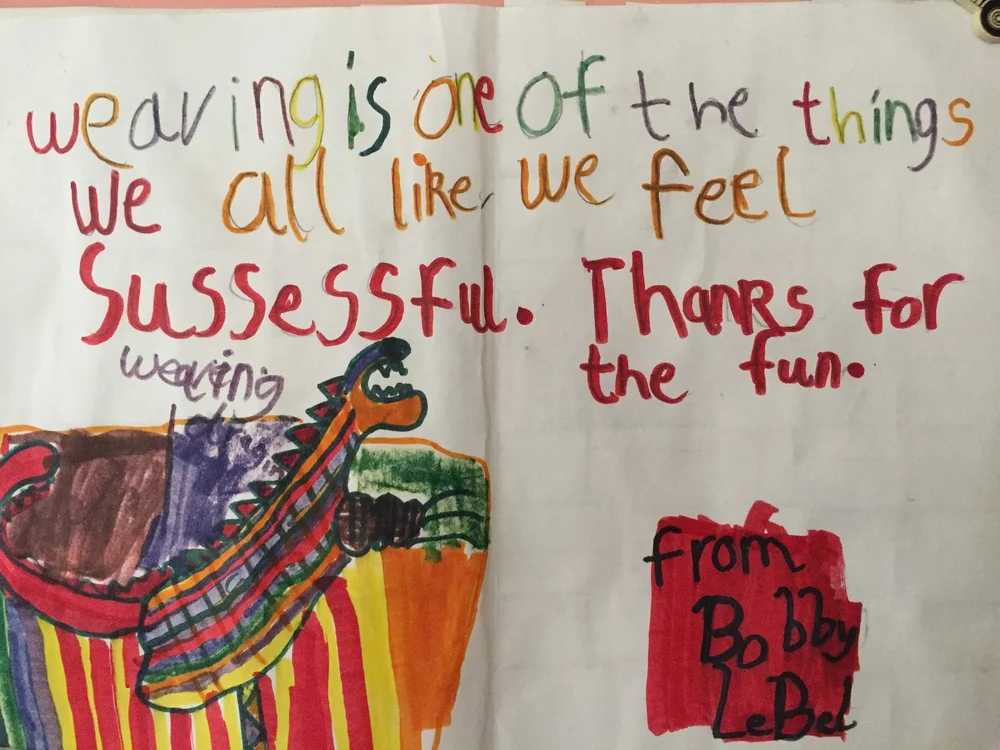 weaving is one of the things
we all like, we feel
Sussessful. Thanks for
the fun.
weaving
from
Bobby
LeBel